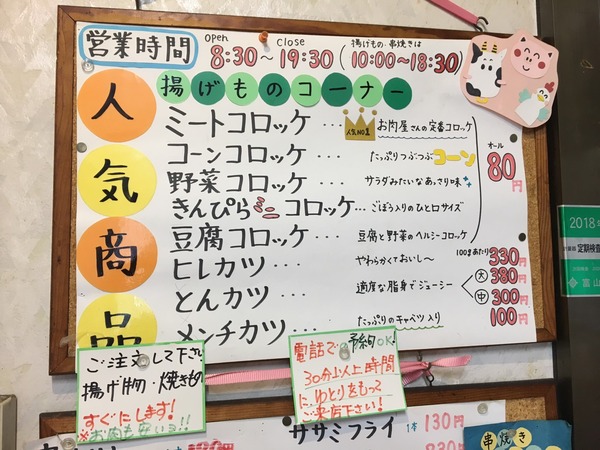 営業時間 open 8:30～ close 19:30 (揚げもの・串焼きは 10:00～18:30)
揚げものコーナー
人気商品
ミートコロッケ… 人気NO.1 お肉屋さんの定番コロッケ
コーンコロッケ… たっぷりつぶつぶコーン
野菜コロッケ… サラダみたいなあっさり味
きんぴらミニコロッケ… ごぼう入りのひと口サイズ
豆腐コロッケ… 豆腐と野菜のヘルシーコロッケ
オール 80円
ヒレカツ… やわらかくておいし～ 100gあたり 330円
とんカツ… 適度な脂身でジューシー 大 380円
中 300円
メンチカツ… たっぷりのキャベツ入り 100円
ご注文して下さい
揚げ物・焼きもの
すぐにします！
※お肉も安いョ!!
電話で予約OK!
30分以上時間
にゆとりをもって
ご来店下さい！
ササミフライ 1本 130円
230円
串焼き
2018年
定期検査
富山